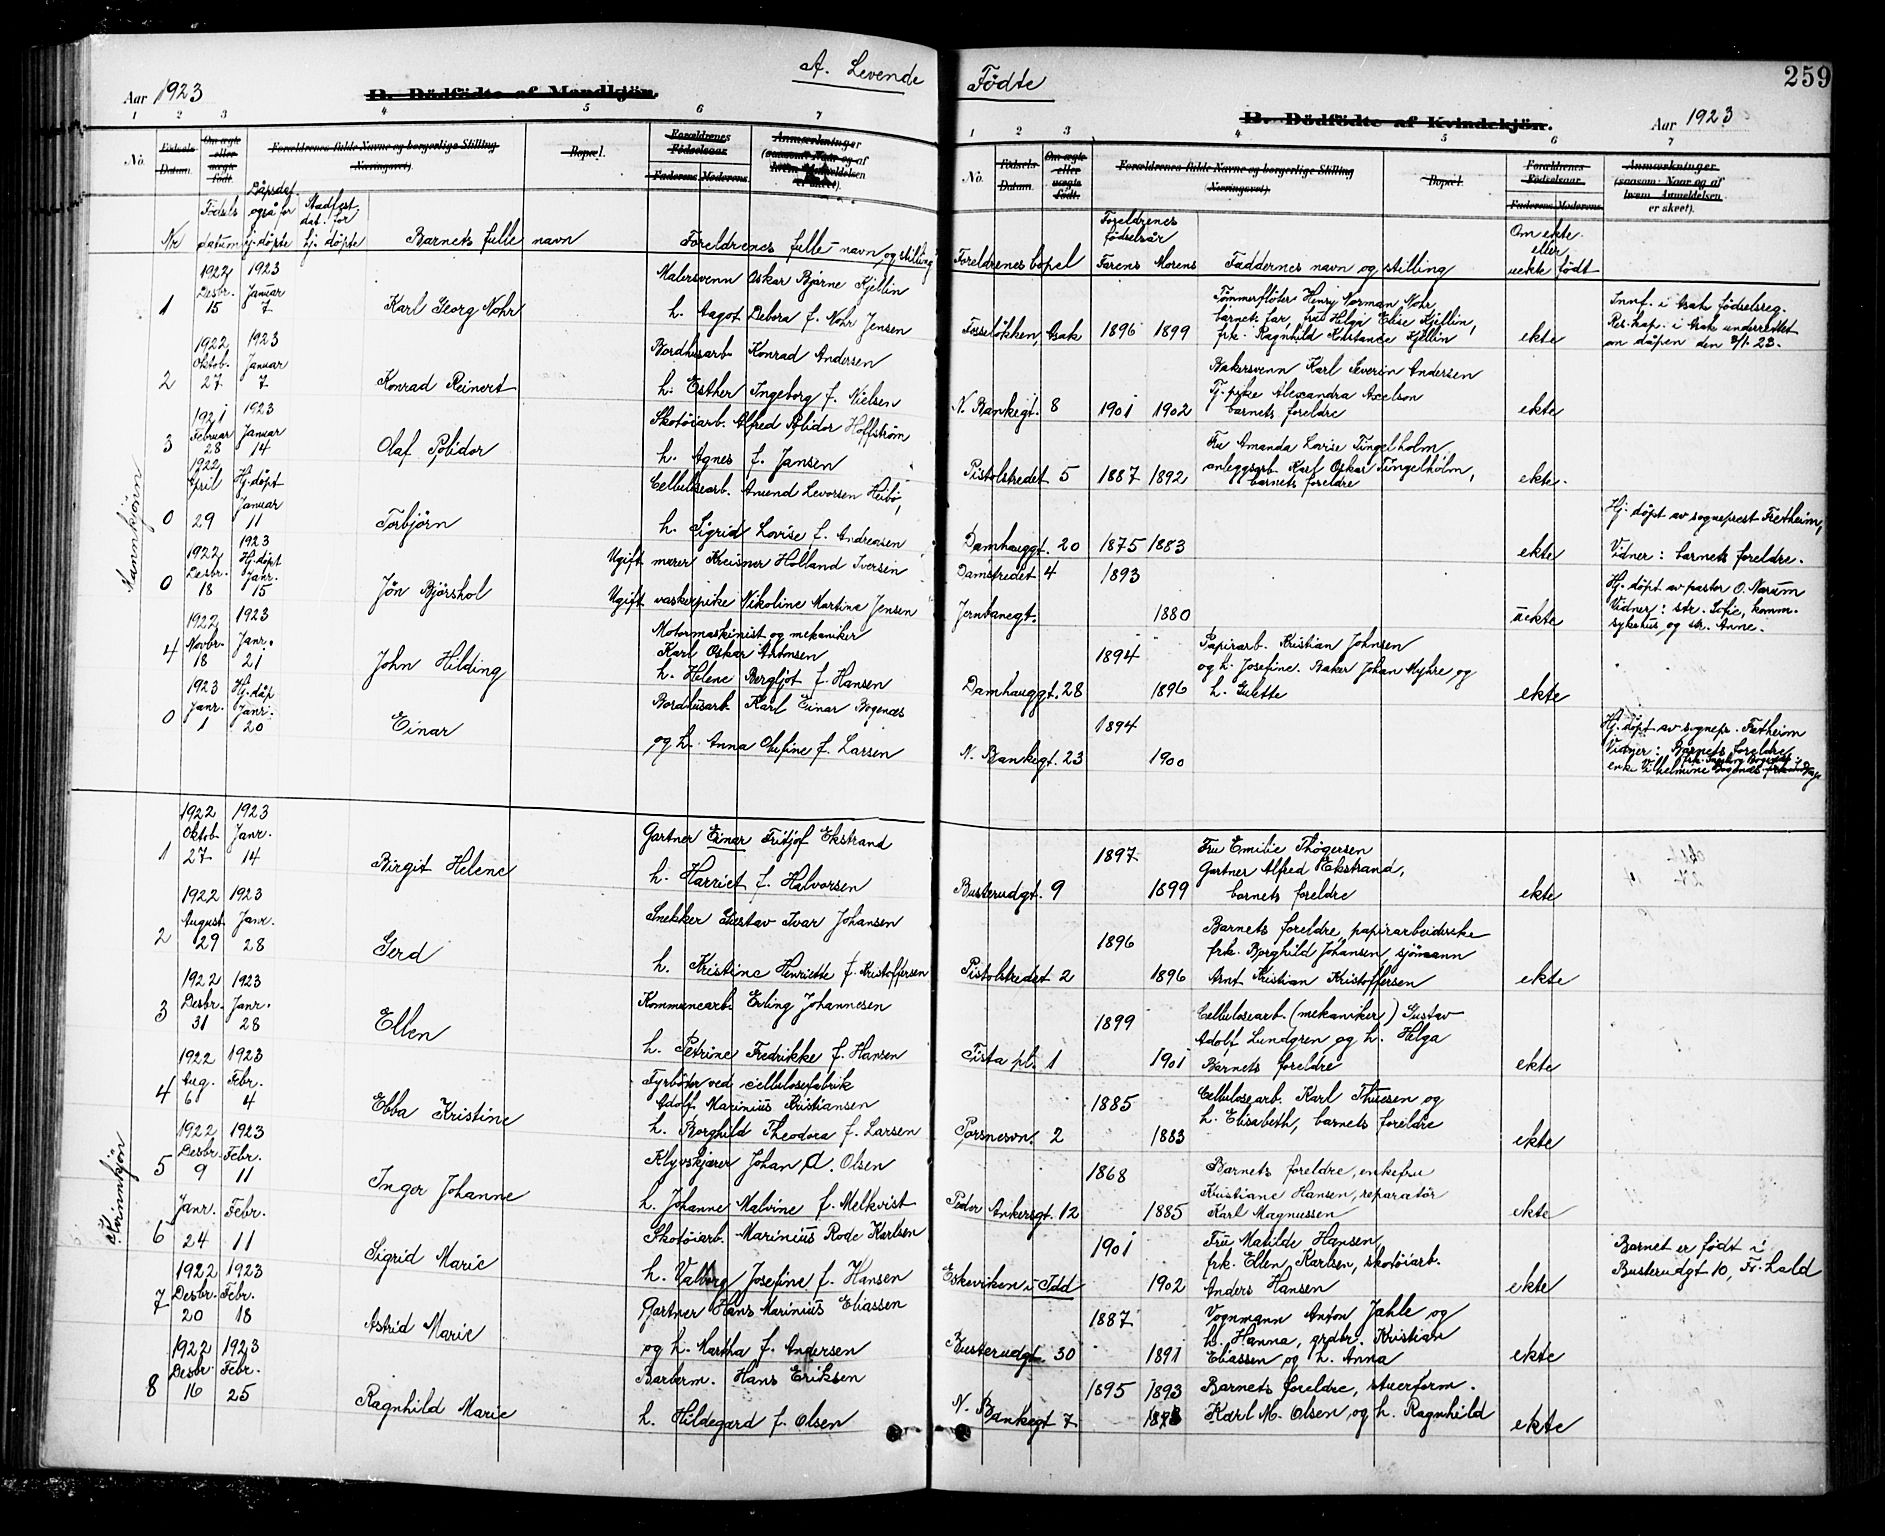 A. Levende Fødte
259
Aar 1923
B. Dödfödte af Mandkjön.
B. Dödfödte af Kvindekjön.
Aar 1923
1 2 3 4 5 6 7
1 2 3 4 5 6 7
No. Fødsels Datum. Om ægte eller uægte født. Forældrenes fulde Navne og borgerlige Stilling (Næringsvei). Bopæl. Forældrenes Fødselsaar Faderens Moderens Anmærkninger (saasom: Naar og af hvem Anmeldelsen er skeet).
No. Fødsels Datum. Om ægte eller uægte født. Forældrenes fulde Navne og borgerlige Stilling (Næringsvei). Bopæl. Forældrenes Fødselsaar Faderens Moderens Anmærkninger (saasom: Naar og af hvem Anmeldelsen er skeet).
Nr Fødsels datum Dåpsdat. også for hj. døpte Stadfest. dat. for hj. døpte Barnets fulle navn Foreldrenes fulle navn og stilling
Foreldrenes bopel Foreldrenes fødselsår Farens Morens Faddernes navn og stilling Om ekte eller uekte født
Mannkjønn
1 1922 Desbr. 15 1923 Januar 7 Karl Georg Nohr
Malersvenn Oskar Bjarne Kjellin
h. Aagot Debora f. Nohr Jensen
Fosseløkken, Asak 1896 1899
Tømmerfløter Henry Norman Nohr,
barnets far, fru Helga Elise Kjellin,
frk. Ragnhild Konstance Kjellin
ekte
Innf. i Asak fødselsreg.
Res. kap. i Asak underrettet
om dåpen den 8/1. 23.
2 1922 Oktob. 27 1923 Januar 7 Konrad Reinert
Bordhusarb. Konrad Andersen
h. Esther Ingeborg f. Nielsen
N. Bankegt. 8 1901 1902
Bakersvenn Karl Severin Andersen
Tj. pike Alexandra Axelson
barnets foreldre
ekte
3 1921 Februar 28 1923 Januar 14 Olaf Polidor
Skotøiarb. Alfred Polidor Hoffstrøm
h. Agnes f. Jansen
Pistolstredet 5 1887 1892
Fru Amanda Lovise Tingelholm
anleggsarb. Karl Oskar Tingelholm,
barnets foreldre
ekte.
0 1922 April 29 Hj. døpt Januar 11 Torbjørn
Cellulosearb. Amund Levorsen Heibø,
h. Sigrid Lovise f. Andreasen
Damhauggt. 20 1875 1883
ekte
Hj. døpt av sogneprest Fretheim,
Vidner: barnets foreldre.
0 1922 Desbr. 18 1923 Hj. døpt Janr. 15 Jøn Bjørshol
Ugift murer Kreisner Holland Iversen
Ugift vaskerpike Nikoline Martine Jensen
Damstredet 4 1893
Jernbanegt. 1880
uekte
Hj. døpt av pastor O. Narum
Vidner: str. Sofie, komm.
sykehus, og str. Anne.
4 1922 Novbr. 18 1923 Janr. 21 John Hilding
Motormaskinist og mekaniker
Karl Oskar Antonsen
h. Helene Bergljot f. Hansen
Damhauggt. 28 1894 1896
Papirarb. Kristian Johnsen
og h. Josefine. Baker Johan Myhre og
h. Gustte
ekte
0 1923 Janr. 1 Hj. dåp Janr. 20 Einar
Bordhusarb. Karl Einar Bogenæs
og h. Anna Olufine f. Larsen
N. Bankegt. 23 1894 1900
Hj. døpt av sognepr. Fretheim
Vidner: Barnets foreldre,
frk. Ingeborg Bogenæs
enke Vilhelmine Bogenæs
Kvinnkjøn
1 1922 Oktob. 27 1923 Janr. 14 Birgit Helene
Gartner Einar Fritjof Ekstrand
h. Harriet f. Halvorsen
Busterudgt. 9 1897 1899
Fru Emilie Thøgersen
Gartner Alfred Ekstrand,
barnets foreldre
ekte
2 1922 August 29 1923 Janr. 28 Gerd
Snekker Gustav Ivar Johansen
h. Kristine Henriette f. Kristoffersen
Pistolstredet 2 1896 1896
Barnets foreldre, papirarbeiderske
frk. Borghild Johansen, sjømann
Arnt Kristian Kristoffersen
ekte
3 1922 Desbr. 31 1923 Janr. 28 Ellen
Kommunearb. Erling Johannesen
h. Petrine Fredrikke f. Hansen
Tista pl. 1 1899 1901
Cellulosearb. (mekaniker) Gustav
Adolf Lundgren og h. Helga
Barnets foreldre
ekte
4 1922 Aug. 6 1923 Febr. 4 Ebba Kristine
Fyrbøter ved cellulosefabrik
Adolf Marinius Kristiansen
h. Borghild Theodora f. Larsen
Porsnesvn. 2 1885 1883
Cellulosearb. Karl Thuesen og
h. Elisabeth, barnets foreldre
ekte
5 1922 Desbr. 9 1923 Febr. 11 Inger Johanne
Klyvskjærer Johan A. Olsen
h. Johanne Malvine f. Melkvist
Peder Ankersgt. 12 1868 1885
Barnets foreldre, enkefru
Kristiane Hansen, reparatør
Karl Magnussen
ekte
6 Janr. 24 Febr. 11 Sigrid Marie
Skotøiarb. Marinius Rode Karlsen
h. Valborg Josefine f. Hansen
Eskeviken i Idd 1901 1902
Fru Matilde Hansen,
frk. Ellen Karlsen, skotøiarb.
Anders Hansen
ekte
Barnet er født i
Busterudgt 10, Fr.hald
7 1922 Desbr. 20 1923 Febr. 18 Astrid Marie
Gartner Hans Marinius Eliassen
og h. Martha f. Andersen
Busterudgt. 30 1887 1891
Vognmann Anton Jahle og
h. Hanna, grdbr. Kristian
Eliassen og h. Anna
ekte
8 1922 Desbr. 16 1923 Febr. 25 Ragnhild Marie
Barberm. Hans Eriksen
h. Hildegard f. Olsen
N. Bankegt 7 1895 1893
Barnets foreldre, stuerform.
Karl M. Olsen og h. Ragnhild
ekte